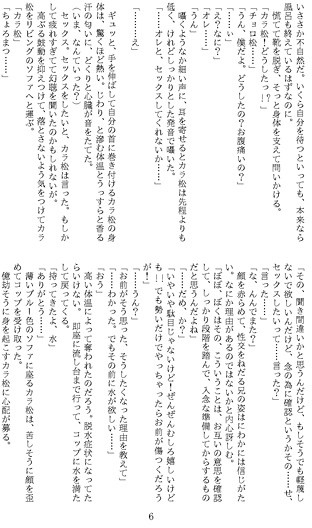 いささか不自然だ。いくら自分を待つといっても、本来なら
風呂も終えているはずなのに。
慌てて靴を脱ぎ、そっと身体を支えて問いかける。
「カラ松！どうしたっ…！」
「チョロ松……？」
「うん、僕だよ。どうしたの？お腹痛いの？」
「……オレと」
「えっなに？」
「うん」
「……オレと、セックスしてくれないか……」
「……え」
囁くようなか細い声に、耳を寄せるとカラ松は先程よりも
低く、けれどしっかりとした発音で囁いた。
ギュッと、手を伸ばして自分の首に巻き付けるカラ松の身
体は、驚くほど熱い。じわり、と滲む体温とうっすらと香る
汗の匂いに、どくりと心臓が音をたてた。
いま、なんていった？
セックス、セックスをしたいと、カラ松は言った。もしか
して疲れすぎてて幻聴を聞いたのかもしれないが。
高ぶる鼓動を抑えつけて、落とさないよう気をつけてカラ
松をリビングのソファへと運ぶ。
「カラ松」
「ちょろまつ……」
「その、聞き間違いかと思うんだけど、もしそうでも軽蔑し
ないで欲しいんだけど、念の為に確認というかその……、セ
ックスしたいって……言った？」
「言った…」
「な、なんでまた？」
顔を赤らめて、性交をねだる兄の姿はにわかには信じがた
い。なにか理由があるのではないかと内心訝しむ。
「ぱ、ぼくはその、こういうことは、お互いの意思を確認
して、しっかり段階を踏んで、入念な準備してからするもの
だと思うんだよね」
「……だめか？」
「いやいや駄目じゃないけど！ぜんぜんむしろ嬉しいけど
も…でも勢いだけでやっちゃったらお前が傷つくだろう
が！」
「……うん？」
「お前がそう思った、そうしたくなった理由を教えて」
「……わかった。でもその前に水が欲しい……」
「おう」
高い体温によって奪われたのだろう。脱水症状になってた
らいけない。即座に流し台まで行って、コップに水を満た
して戻ってくる。
「持ってきたよ、水」
「ありがとう……」
薄いブルー色のソファに座るカラ松は、苦しそうに顔を歪
めてコップを受け取った。
億劫そうに身を起こすカラ松に心配が募る。
6